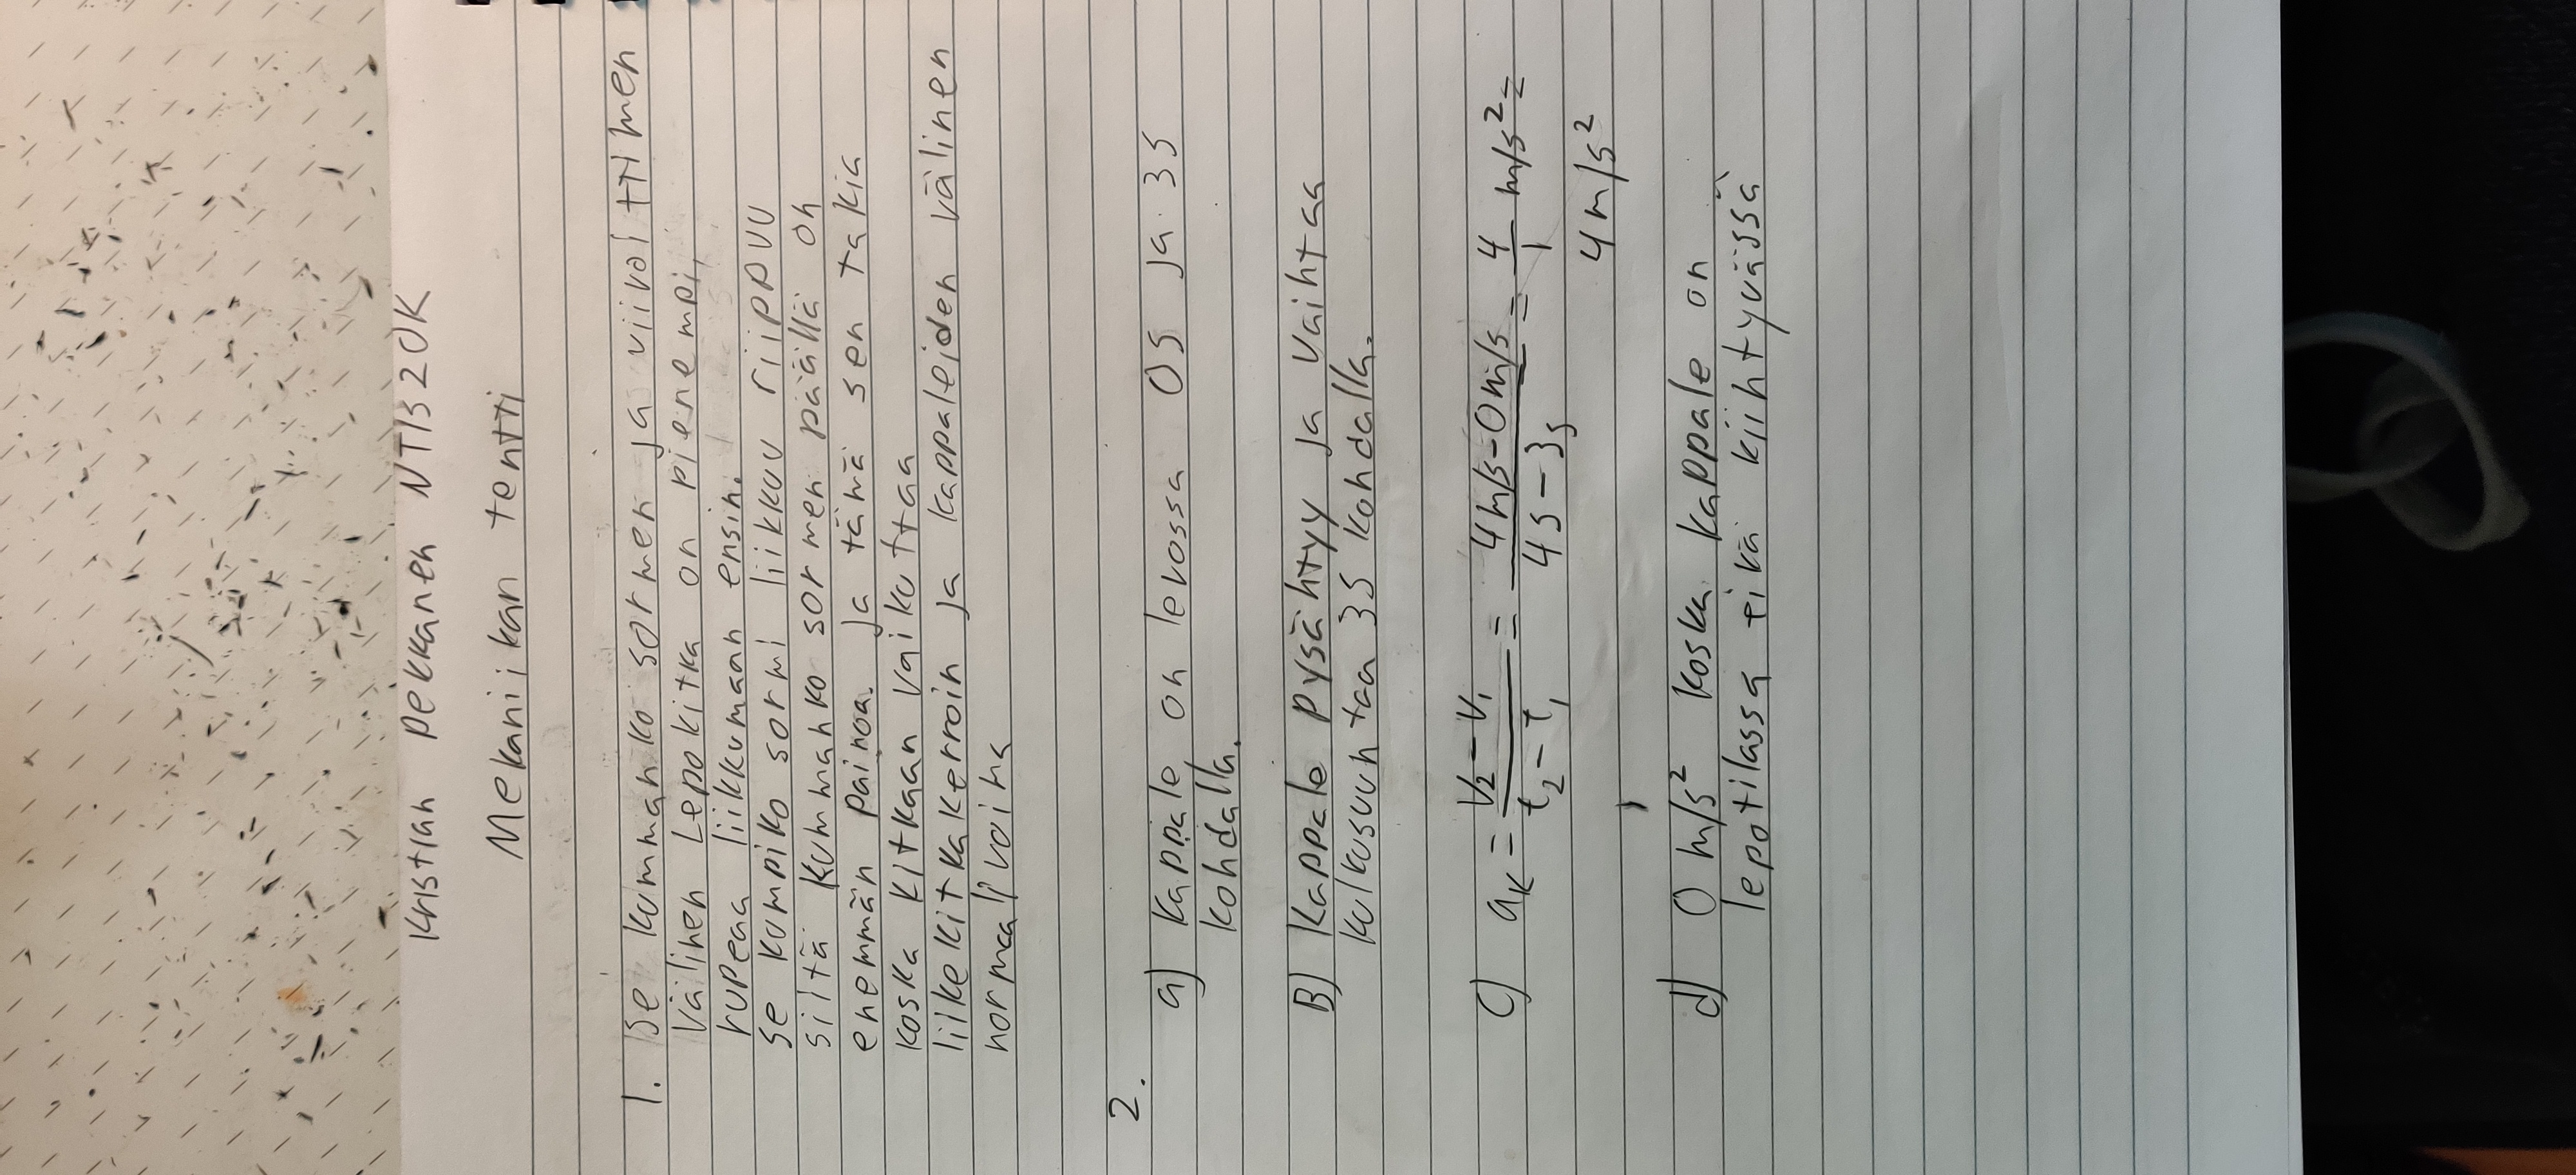 Kristian Pekkanen NTIS20K
Mekaniikan tentti
1. Se kummanko sormen ja viivoittimen
välinen Lepokitka on pienempi,
rupeaa liikkumaan ensin.
se kumpiko sormi liikkuu riippuu
siitä kummanko sormen päällä on
enemmän painoa. Ja tämä sen takia
koska kitkaan vaikuttaa
liikekitkakerroin ja kappaleiden välinen
normaalivoima
2.
a) Kappale on levossa 0s ja 3s
kohdalla.
B) Kappale pysähtyy ja vaihtaa
kulkusuuntaa 3s kohdalla.
c) aₖ = (v₂ - v₁)/(t₂ - t₁) = (4m/s - 0m/s)/(4s - 3s) = 4/1 m/s² =
4m/s²
d) 0 m/s² koska kappale on
lepotilassa eikä kiihtyvässä